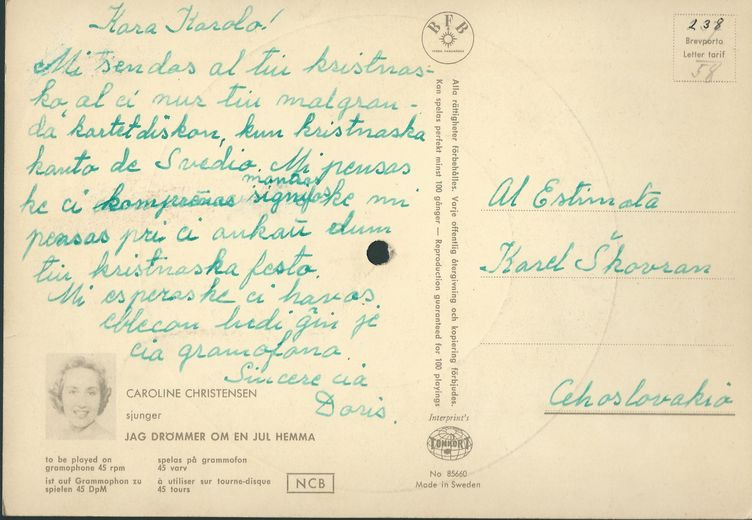 Kara Karolo!
Mi sendas al tiu kristnas-
ko, al ci nur tiu malgran-
da kartetdiskon, kun kristnaska
kanto de Svedio. Mi pensas
ke ci komprenas signifos ke mi
pensas pri ci ankaŭ dum
tiu kristnaska festo.
Mi esperas ke ci havas
eblecon ludi ĝin je
cia gramofono.
Sincere cia
Doris.
CAROLINE CHRISTENSEN
sjunger
JAG DRÖMMER OM EN JUL HEMMA
to be played on
gramophone 45 rpm
ist auf Grammophon zu
spielen 45 DpM
spelas på grammofon
45 varv
à utiliser sur tourne-disque
45 tours
NCB
BFB
Alla rättigheter förbehålles. Varje offentlig återgivning och kopiering förbjudes.
Kan spelas perfekt minst 100 gånger — Reproduction guaranteed for 100 playings
Interprint's
No 85660
Made in Sweden
238
Brevporto
Letter tarif
58
Al Estimata
Karel Škovran
Cehoslovakio